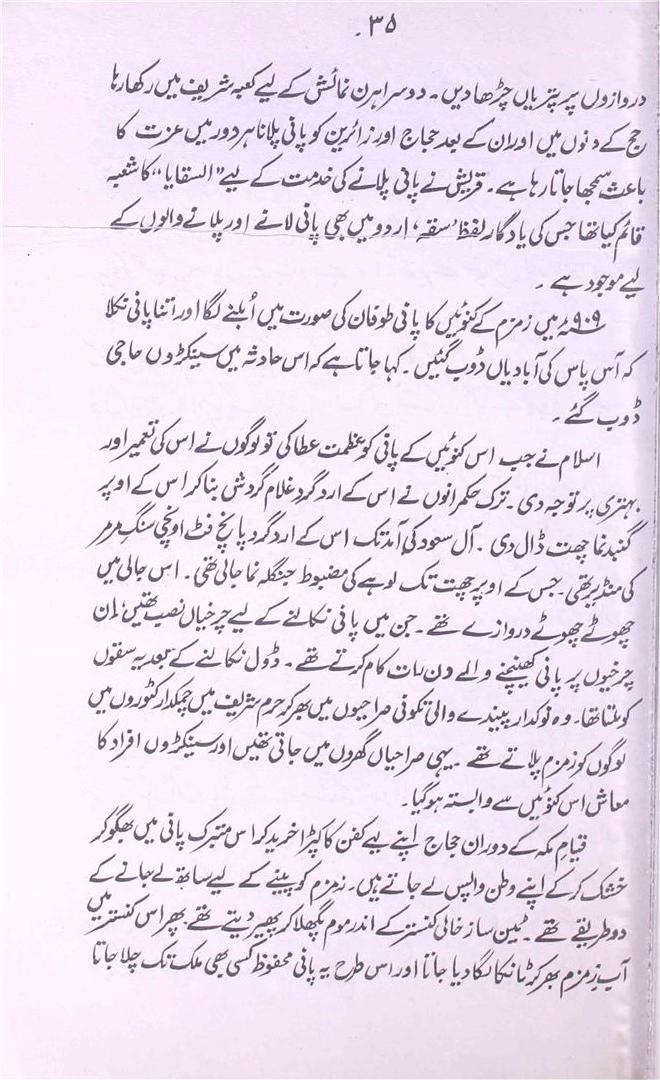 ۳۵
دروازوں پر پتریاں چڑھا دیں۔ دوسرا ہرن نمائش کے لیے کعبہ شریف میں رکھا رہا
حج کے دنوں میں اور ان کے بعد حجاج اور زائرین کو پانی پلانا ہر دور میں عزت کا
باعث سمجھا جاتا رہا ہے۔ قریش نے پانی پلانے کی خدمت کے لیے "السقایا" کا شعبہ
قائم کیا تھا جس کی یادگار لفظ 'سقہ' اردو میں بھی پانی لانے اور پلانے والوں کے
لیے موجود ہے۔
۹۰۹ء میں زمزم کے کنوئیں کا پانی طوفان کی صورت میں اُبلنے لگا اور اتنا پانی نکلا
کہ آس پاس کی آبادیاں ڈوب گئیں۔ کہا جاتا ہے کہ اس حادثہ میں سینکڑوں حاجی
ڈوب گئے۔
اسلام نے جب اس کنوئیں کے پانی کو عظمت عطا کی تو لوگوں نے اس کی تعمیر اور
بہتری پر توجہ دی۔ ترک حکمرانوں نے اس کے ارد گرد غلام گردش بنا کر اس کے اوپر
گنبد نما چھت ڈال دی۔ آل سعود کی آمد تک اس کے ارد گرد پانچ فٹ اونچی سنگِ مرمر
کی منڈیر تھی جس کے اوپر چھت تک لوہے کی مضبوط جنگلہ نما جالی تھی۔ اس جالی میں
چھوٹے چھوٹے دروازے تھے۔ جن میں پانی نکالنے کے لیے چرخیاں نصب تھیں، ان
چرخیوں پر پانی کھینچنے والے دن رات کام کرتے تھے۔ ڈول نکالنے کے بعد یہ سقوں
کو ملتا تھا۔ وہ نوکدار پیندے والی تکونی صراحیوں میں بھر کر حرم شریف میں چمکدار کٹوروں میں
لوگوں کو زمزم پلاتے تھے۔ یہی صراحیاں گھروں میں جاتی تھیں اور سینکڑوں افراد کا
معاش اس کنوئیں سے وابستہ ہو گیا۔
قیامِ مکہ کے دوران حجاج اپنے لیے کفن کا کپڑا خرید کر اس متبرک پانی میں بھگو کر
خشک کر کے اپنے وطن واپس لے جاتے ہیں۔ زمزم کو پینے کے لیے ساتھ لے جانے کے
دو طریقے تھے۔ ٹین ساز خالی کنستر کے اندر موم پگھلا کر پھیر دیتے تھے۔ پھر اس کنستر میں
آبِ زمزم بھر کر ٹانکا لگا دیا جاتا اور اس طرح یہ پانی محفوظ کسی بھی ملک تک چلا جاتا